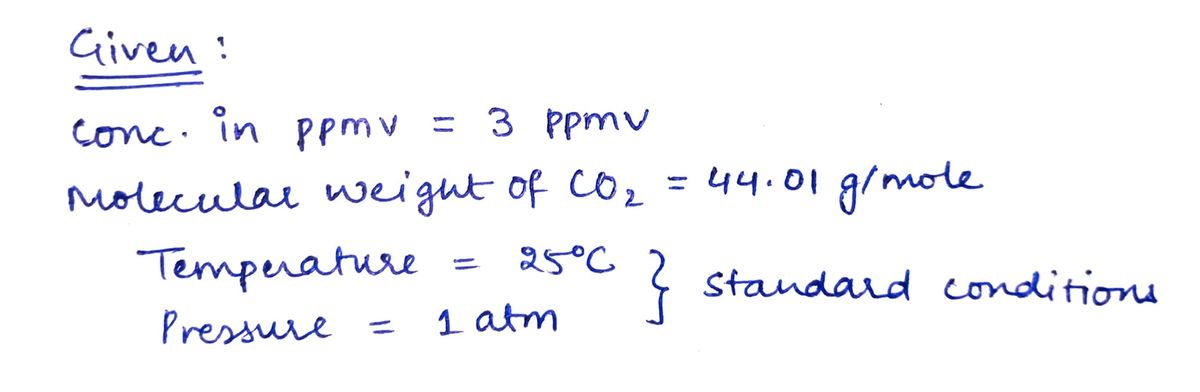 Given :
Conc. in ppmv = 3 ppmv
Molecular weight of CO₂ = 44.01 g/mole
Temperature = 25°C } standard conditions
Pressure = 1 atm